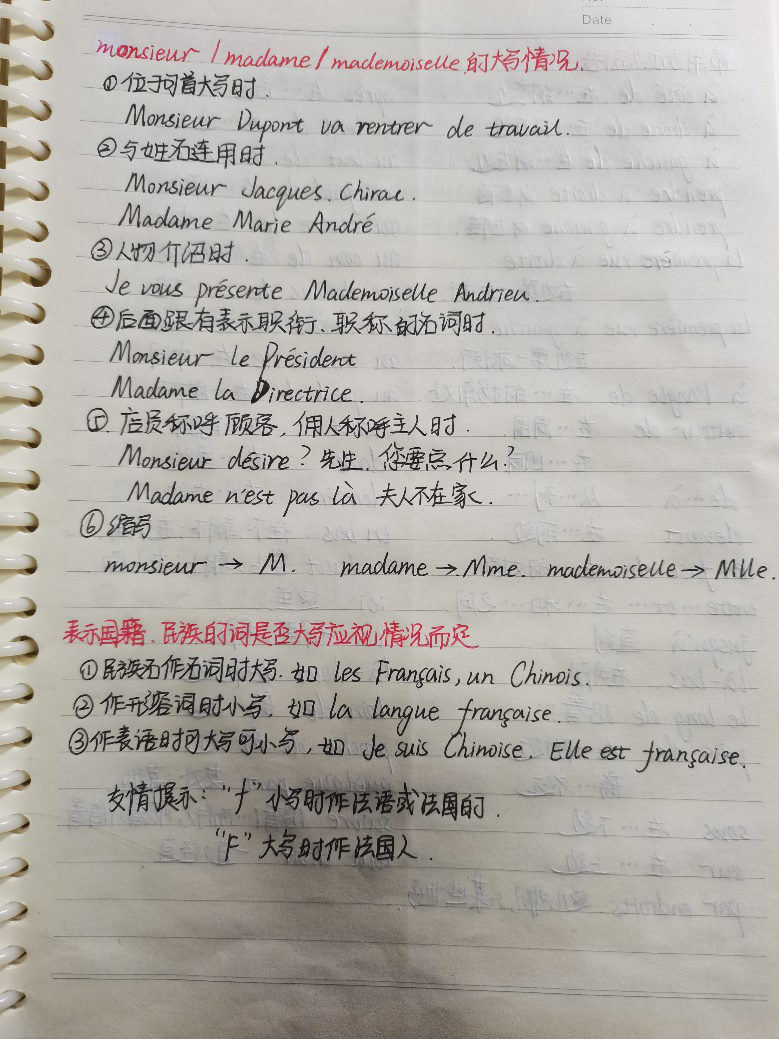 Date
monsieur / madame / mademoiselle 的大写情况.
① 位于句首大写时.
Monsieur Dupont va rentrer de travail.
② 与姓名连用时.
Monsieur Jacques. Chirac.
Madame Marie André
③ 人物介绍时.
Je vous présente Mademoiselle Andrieu.
④ 后面跟有表示职衔、职称的名词时.
Monsieur le Président
Madame la Directrice.
⑤ 店员称呼顾客, 佣人称呼主人时.
Monsieur désire? 先生, 您要点什么?
Madame n'est pas là 夫人不在家.
⑥ 缩写
monsieur → M. madame → Mme. mademoiselle → Mlle.
表示国籍、民族的词是否大写应视情况而定
① 民族名作名词时大写. 如 les Français, un Chinois.
② 作形容词时小写. 如 la langue française.
③ 作表语时可大写可小写, 如 Je suis Chinoise. Elle est française.
友情提示: "f" 小写时作法语或法国的.
"F" 大写时作法国人.